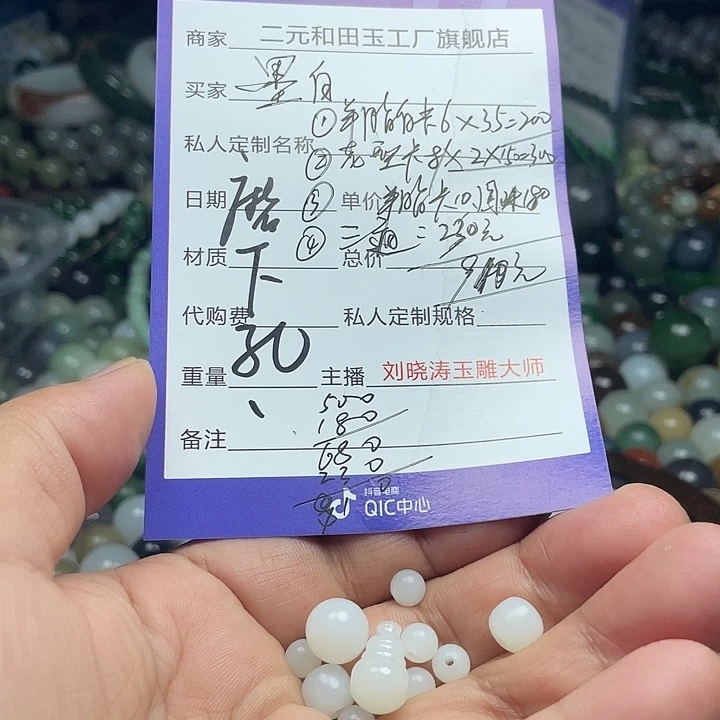 商家 二元和田玉工厂旗舰店
买家 墨白
①羊脂白卡6×35=200
私人定制名称
② 卡8×2×150=300
日期 ③ 单价 羊脂卡10 180
④ 三 = 230元
材质 总价
910元
代购费 私人定制规格
重量 主播 刘晓涛玉雕大师
下孔
500
180
备注
680
230
抖音电商
QIC中心